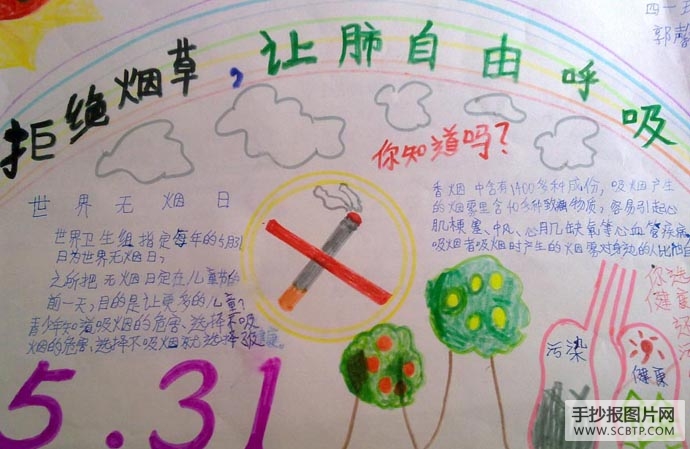 四一五
郭馨
拒绝烟草,让肺自由呼吸
你知道吗?
世界无烟日
世界卫生组指定每年的5月31
日为世界无烟日;
之所把无烟日定在儿童节的
前一天,目的是让更多的儿童?
青少年知道吸烟的危害、选择不吸
烟的危害、选择不吸烟
选择
香烟中含有1400多种成份,吸烟产生
的烟雾里含40多种致癌物质,容易引起心
肌梗塞、中风、心肌缺氧等心血管疾病
吸烟者吸烟时产生的烟雾对身边的人
你选
健康
污染
健康
5.31
手抄报图片网
WWW.SCBTP.COM